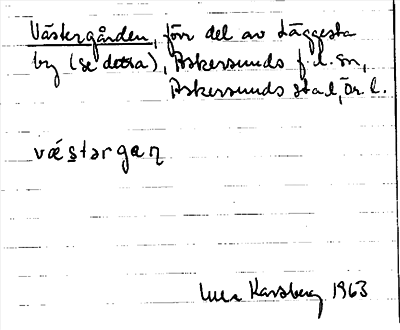 Västergården, förr del av Läggesta
by (se detta), Askersunds f.d. sn,
Askersunds stad, Ör. l.
væ´stərgaɳ
Karsberg 1963